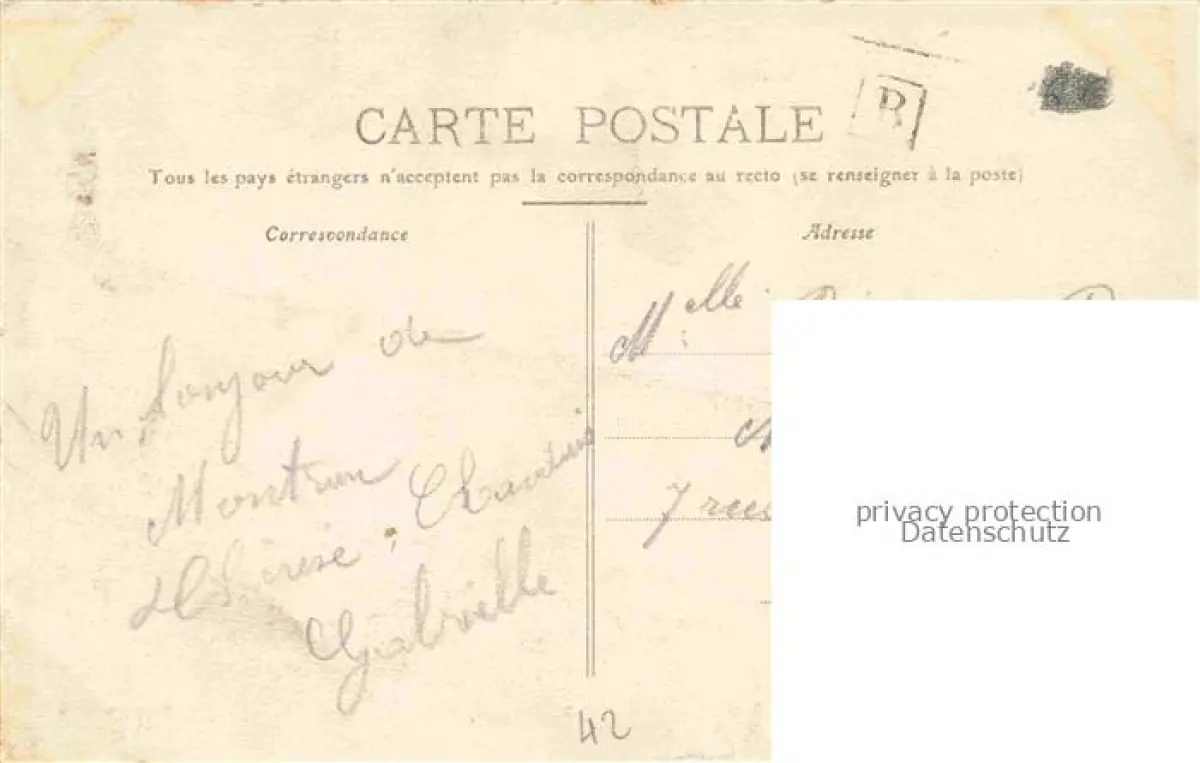 CARTE POSTALE
B
Tous les pays étrangers n'acceptent pas la correspondance au recto (se renseigner à la poste)
Correspondance
Adresse
Un bonjour de
Montron
Thérèse, Claudius
Gabrielle
Melle
7 rue
privacy protection
Datenschutz
42